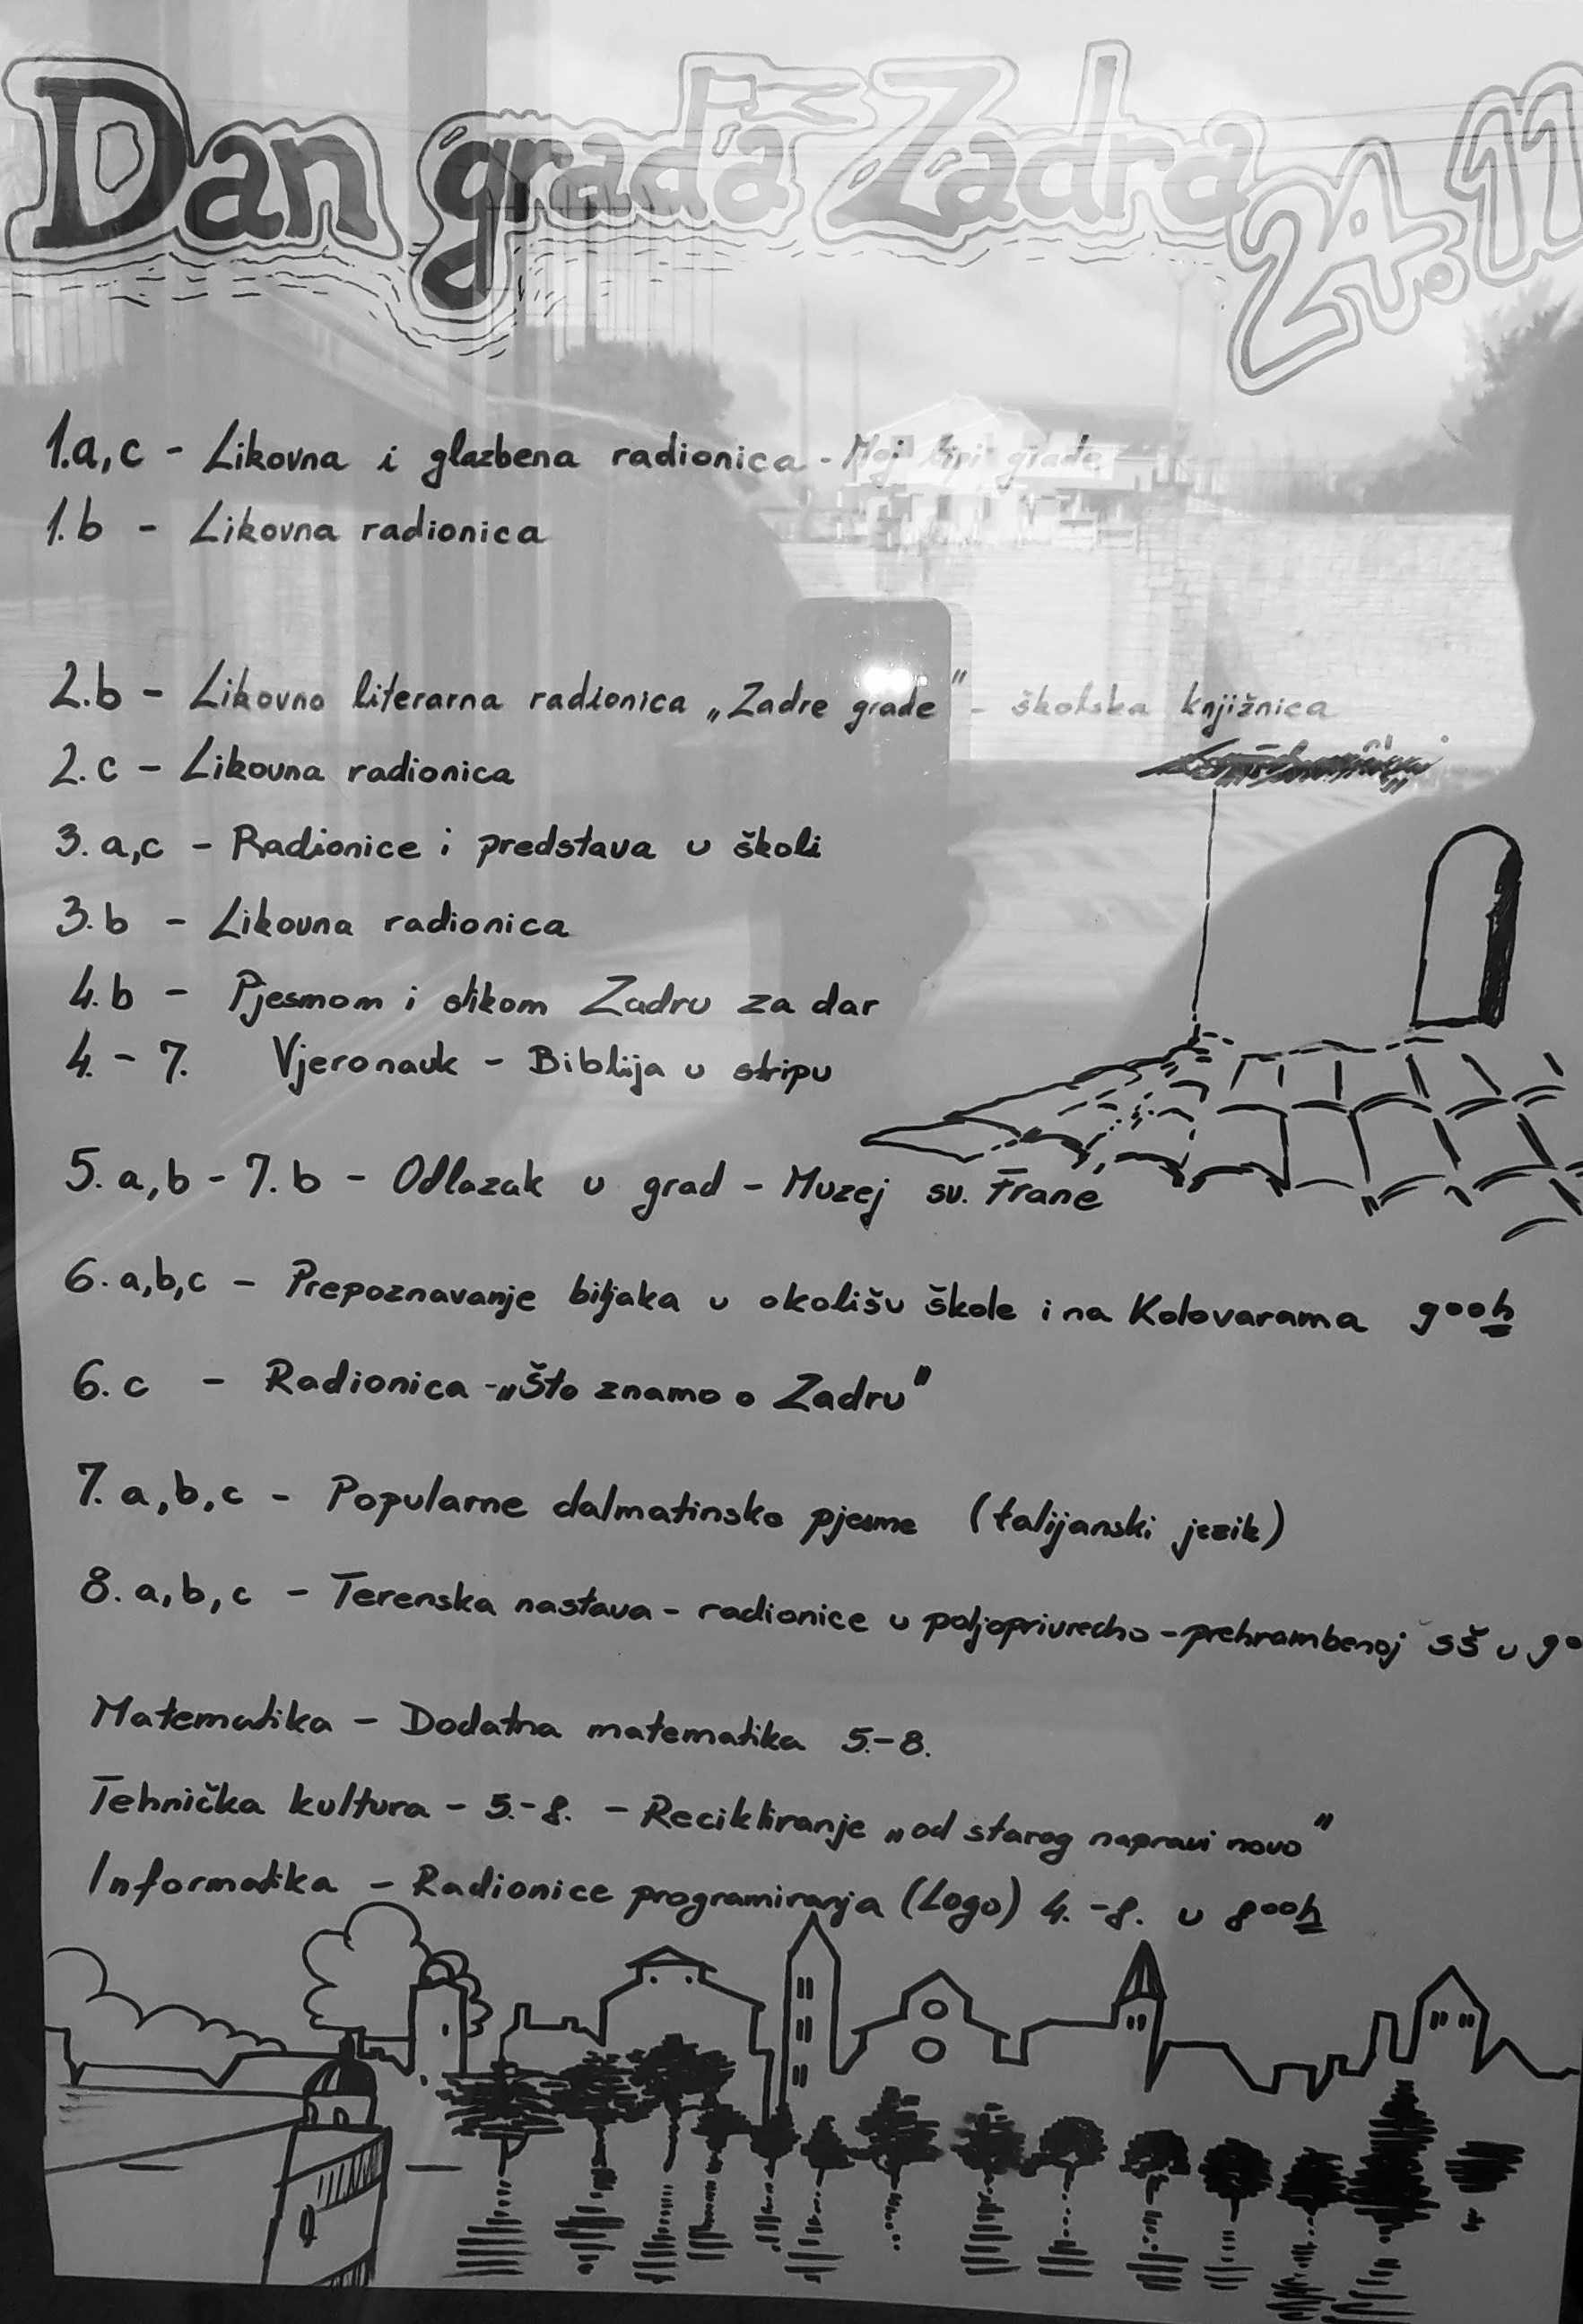 Dan grada Zadra 24.11
1.a,c - Likovna i glazbena radionica - Moj lipi grade
1.b - Likovna radionica
2.b - Likovno literarna radionica „Zadre grade" - školska knjižnica
2.c - Likovna radionica
3. a,c - Radionice i predstava u školi
3.b - Likovna radionica
4.b - Pjesmom i slikom Zadru za dar
4. - 7. Vjeronauk - Biblija u stripu
5. a,b - 7. b - Odlazak u grad - Muzej sv. Frane
6. a,b,c - Prepoznavanje biljaka u okolišu škole i na Kolovarama 9ooh
6. c - Radionica - „Što znamo o Zadru"
7. a,b,c - Popularne dalmatinske pjesme (talijanski jezik)
8. a,b,c - Terenska nastava - radionice u poljoprivredno - prehrambenoj SŠ u 9o
Matematika - Dodatna matematika 5.-8.
Tehnička kultura - 5.-8. - Recikliranje „od starog napravi novo"
Informatika - Radionice programiranja (Logo) 4. -8. u 8ooh